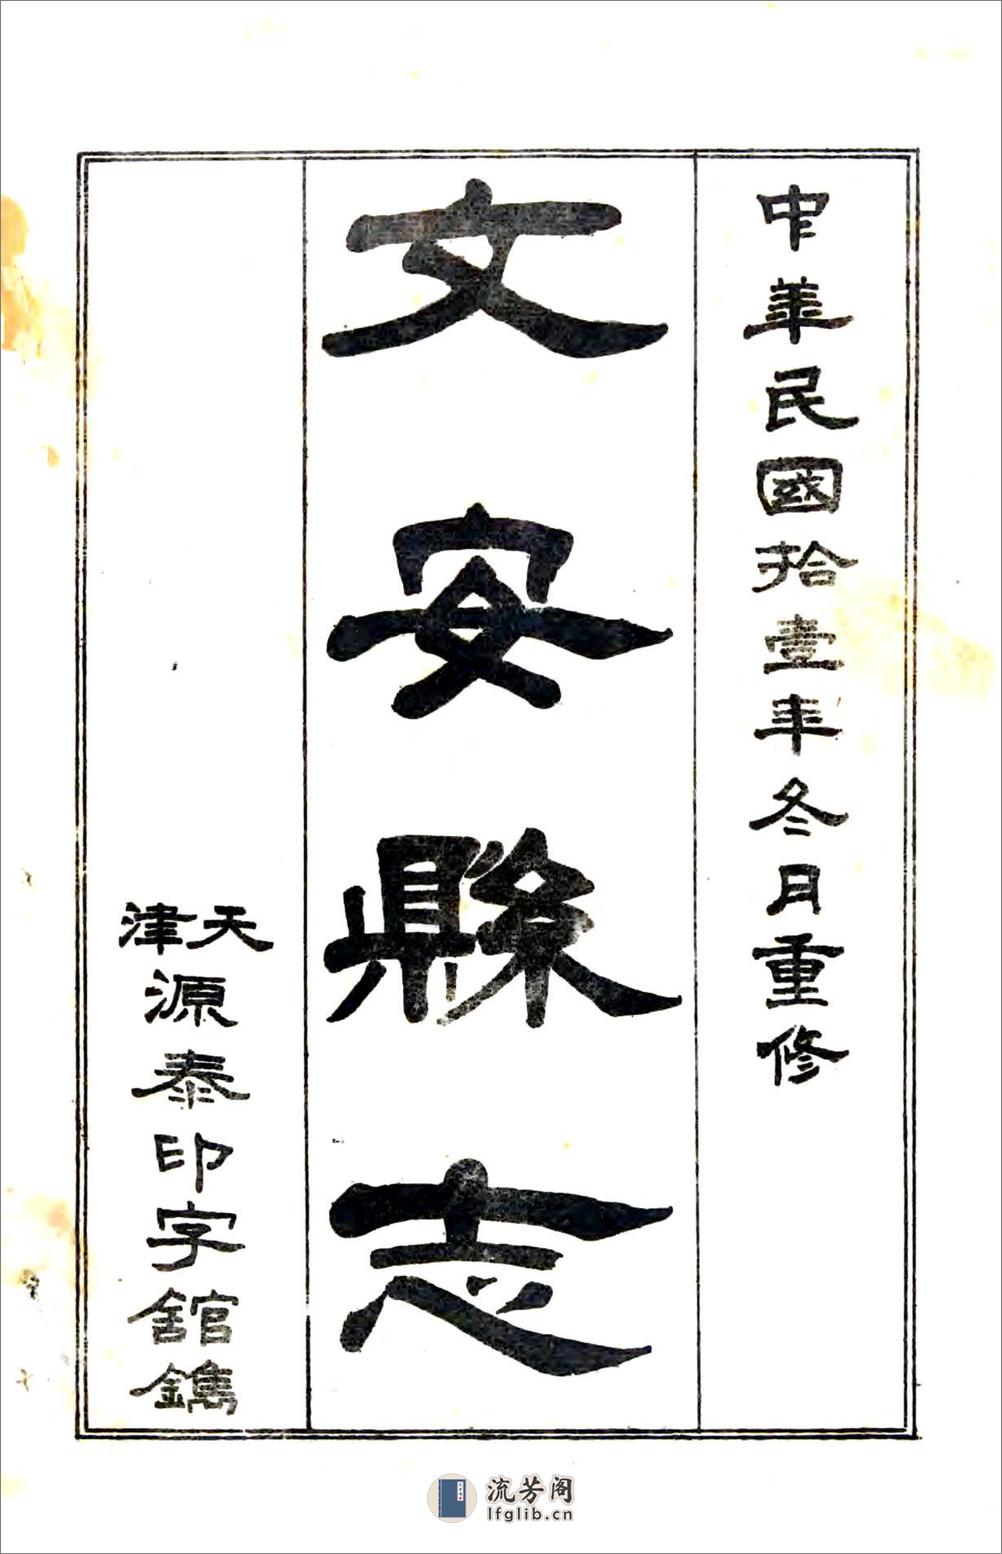 中華民國拾壹年冬月重修
文安縣志
天津源泰印字館鐫
流芳阁
lfglib.cn